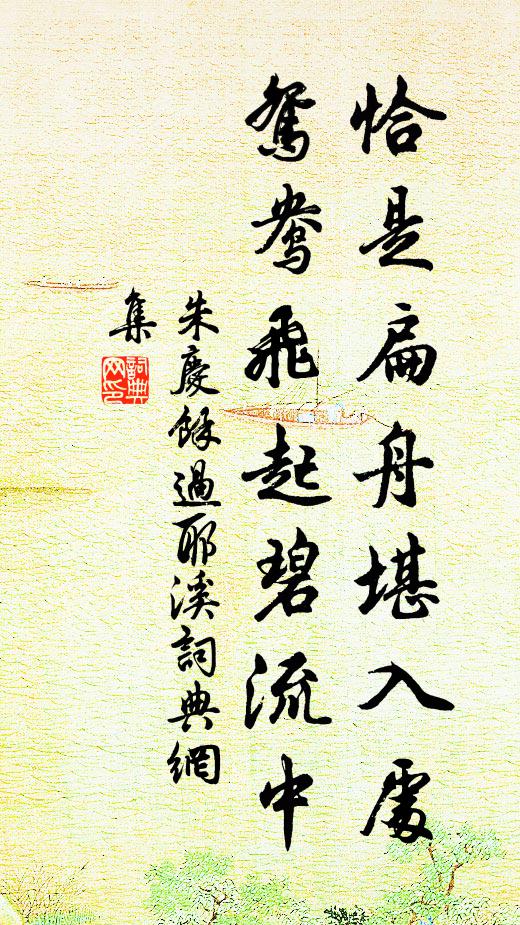 恰是扁舟堪入處
鴛鴦飛起碧流中
朱慶餘過耶溪詞典網
集
詞典
网印